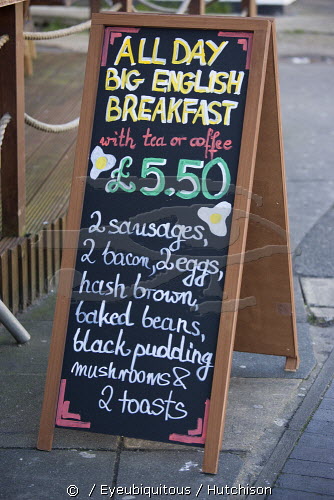 ALL DAY
BIG ENGLISH
BREAKFAST
with tea or coffee
£5.50
2 sausages,
2 bacon, 2 eggs,
hash brown,
baked beans,
black pudding
mushrooms &
2 toasts
© / Eyeubiquitous / Hutchison